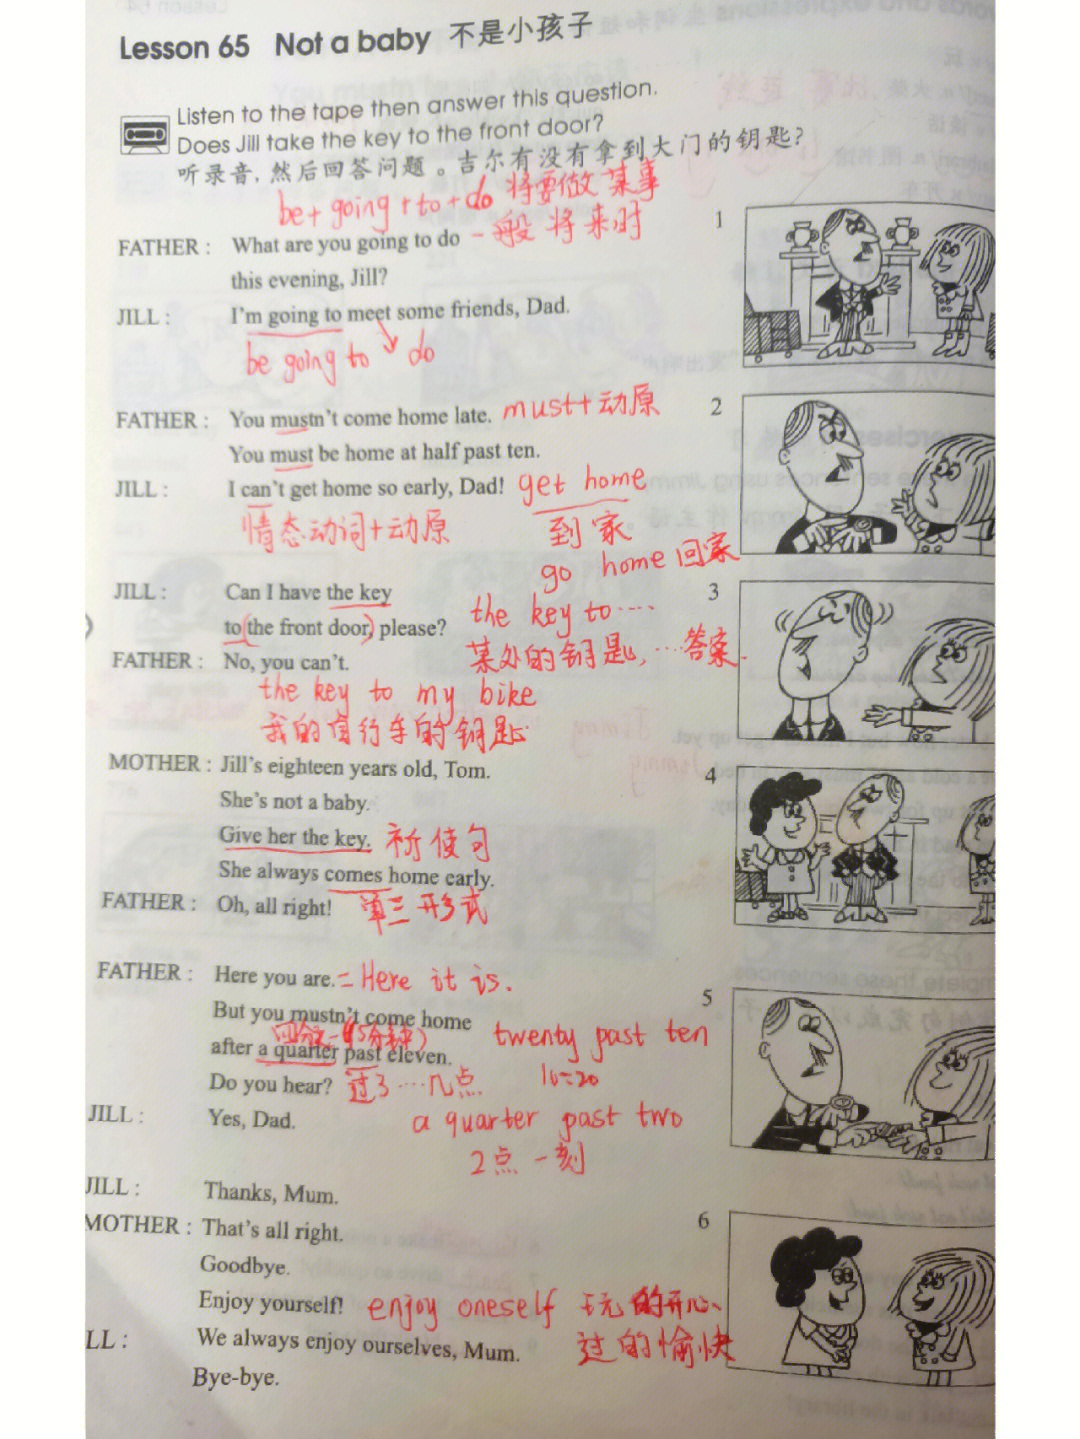 Lesson 65 Not a baby 不是小孩子
Listen to the tape then answer this question.
Does Jill take the key to the front door?
听录音,然后回答问题。吉尔有没有拿到大门的钥匙?
be + going + to + do 将要做某事
FATHER : What are you going to do 一般将来时
this evening, Jill?
JILL : I'm going to meet some friends, Dad.
be going to do
1
FATHER : You mustn't come home late. must+动原
You must be home at half past ten.
JILL : I can't get home so early, Dad! get home
情态动词+动原 到家
go home 回家
2
JILL : Can I have the key
to (the front door,) please? the key to ····
FATHER : No, you can't. 某处的钥匙, ···答案.
the key to my bike
我的自行车的钥匙
3
MOTHER : Jill's eighteen years old, Tom.
She's not a baby.
Give her the key. 祈使句
She always comes home early.
FATHER : Oh, all right! 单三形式
4
FATHER : Here you are. = Here it is.
But you mustn't come home
四分之一(15分钟) twenty past ten
after a quarter past eleven.
Do you hear? 过了···几点
JILL : Yes, Dad. a quarter past two
2点一刻
5
JILL : Thanks, Mum.
MOTHER : That's all right.
Goodbye.
Enjoy yourself! enjoy oneself 玩的开心、
过的愉快
LL : We always enjoy ourselves, Mum.
Bye-bye.
6